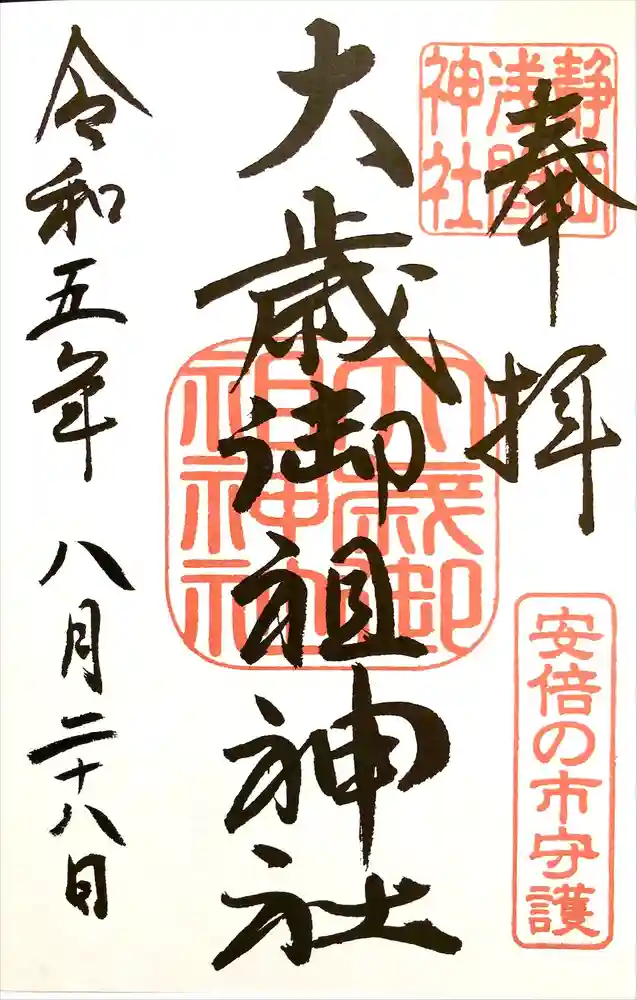 奉拝
静岡
浅間
神社
安倍の市守護
大歳御祖神社
大歳御
祖神社
令和五年 八月二十八日